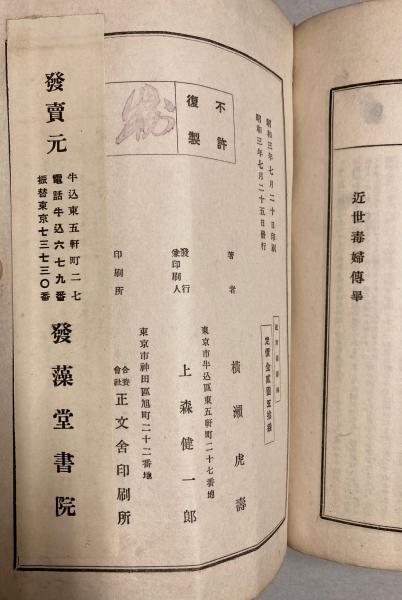 近世毒婦傳畢
昭和三年七月二十日印刷
昭和三年七月二十五日發行
不許
復製
定價金貳圓五拾錢
著者 橫瀨虎壽
東京市牛込區東五軒町二十七番地
發行
兼印刷人 上森健一郎
東京市神田區旭町二十二番地
印刷所 合資會社 正文舍印刷所
發賣元
牛込東五軒町二七
電話牛込六七九番
振替東京七三七三〇番
發藻堂書院